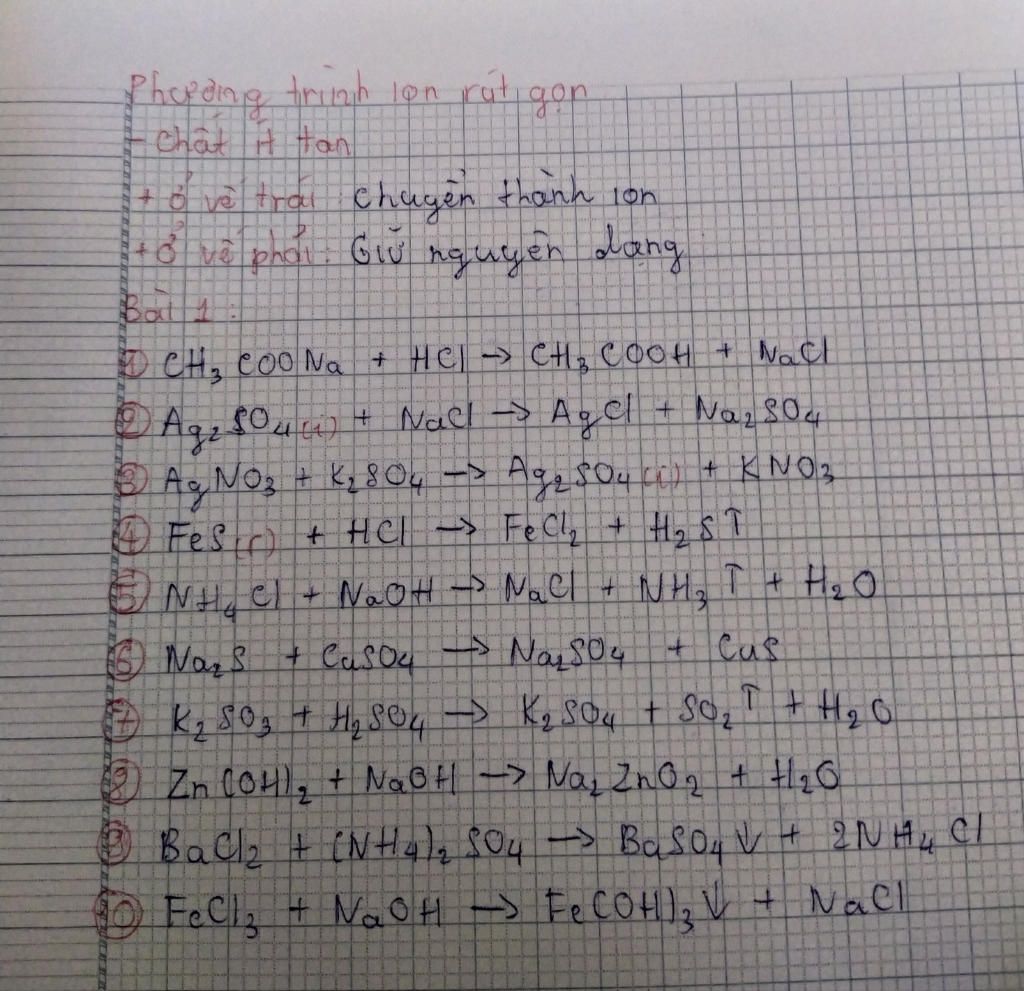 Phương trình ion rút gọn
- Chất ít tan
+ Ở vế trái: chuyển thành ion
+ Ở vế phải: Giữ nguyên dạng
Bài 1:
① CH₃COONa + HCl → CH₃COOH + NaCl
② Ag₂SO₄(i) + NaCl → AgCl + Na₂SO₄
③ AgNO₃ + K₂SO₄ → Ag₂SO₄(i) + KNO₃
④ FeS(r) + HCl → FeCl₂ + H₂S↑
⑤ NH₄Cl + NaOH → NaCl + NH₃↑ + H₂O
⑥ Na₂S + CuSO₄ → Na₂SO₄ + CuS
⑦ K₂SO₃ + H₂SO₄ → K₂SO₄ + SO₂↑ + H₂O
⑧ Zn(OH)₂ + NaOH → Na₂ZnO₂ + H₂O
⑨ BaCl₂ + (NH₄)₂SO₄ → BaSO₄↓ + 2NH₄Cl
⑩ FeCl₃ + NaOH → Fe(OH)₃↓ + NaCl